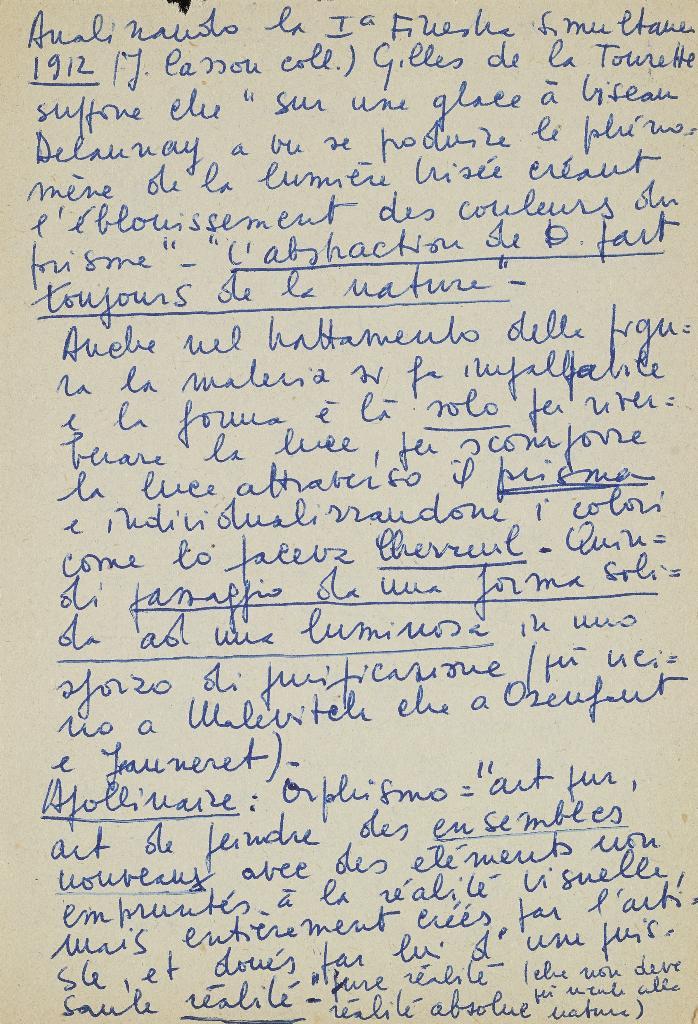 Analizzando la Iª Finestra Simultanea
1912 (J. Cassou coll.) Gilles de la Tourette
suppone che "sur une glace à biseau
Delaunay a vu se produire le phéno=
mène de la lumière brisée créant
l'éblouissement des couleurs du
prisme" – "L'abstraction de D. part
toujours de la nature" –
Anche nel trattamento della figu=
ra la materia si fa impalpabile
e la forma è là solo per river=
berare la luce, per scomporre
la luce attraverso il prisma
e individualizzandone i colori
come lo faceva Chevreul – Quin=
di passaggio da una forma soli=
da ad una luminosa in uno
sforzo di purificazione (più vici=
no a Malevitch che a Ozenfant
e Jeanneret) –
Apollinaire: Orphismo = "art pur,
art de peindre des ensembles
nouveaux avec des eléments non
empruntés à la réalité visuelle,
mais entièrement créés par l'arti=
ste, et doués par lui d'une puis=
sante réalité" – pure réalité (che non deve
réalité absolue più nulla alla
natura)